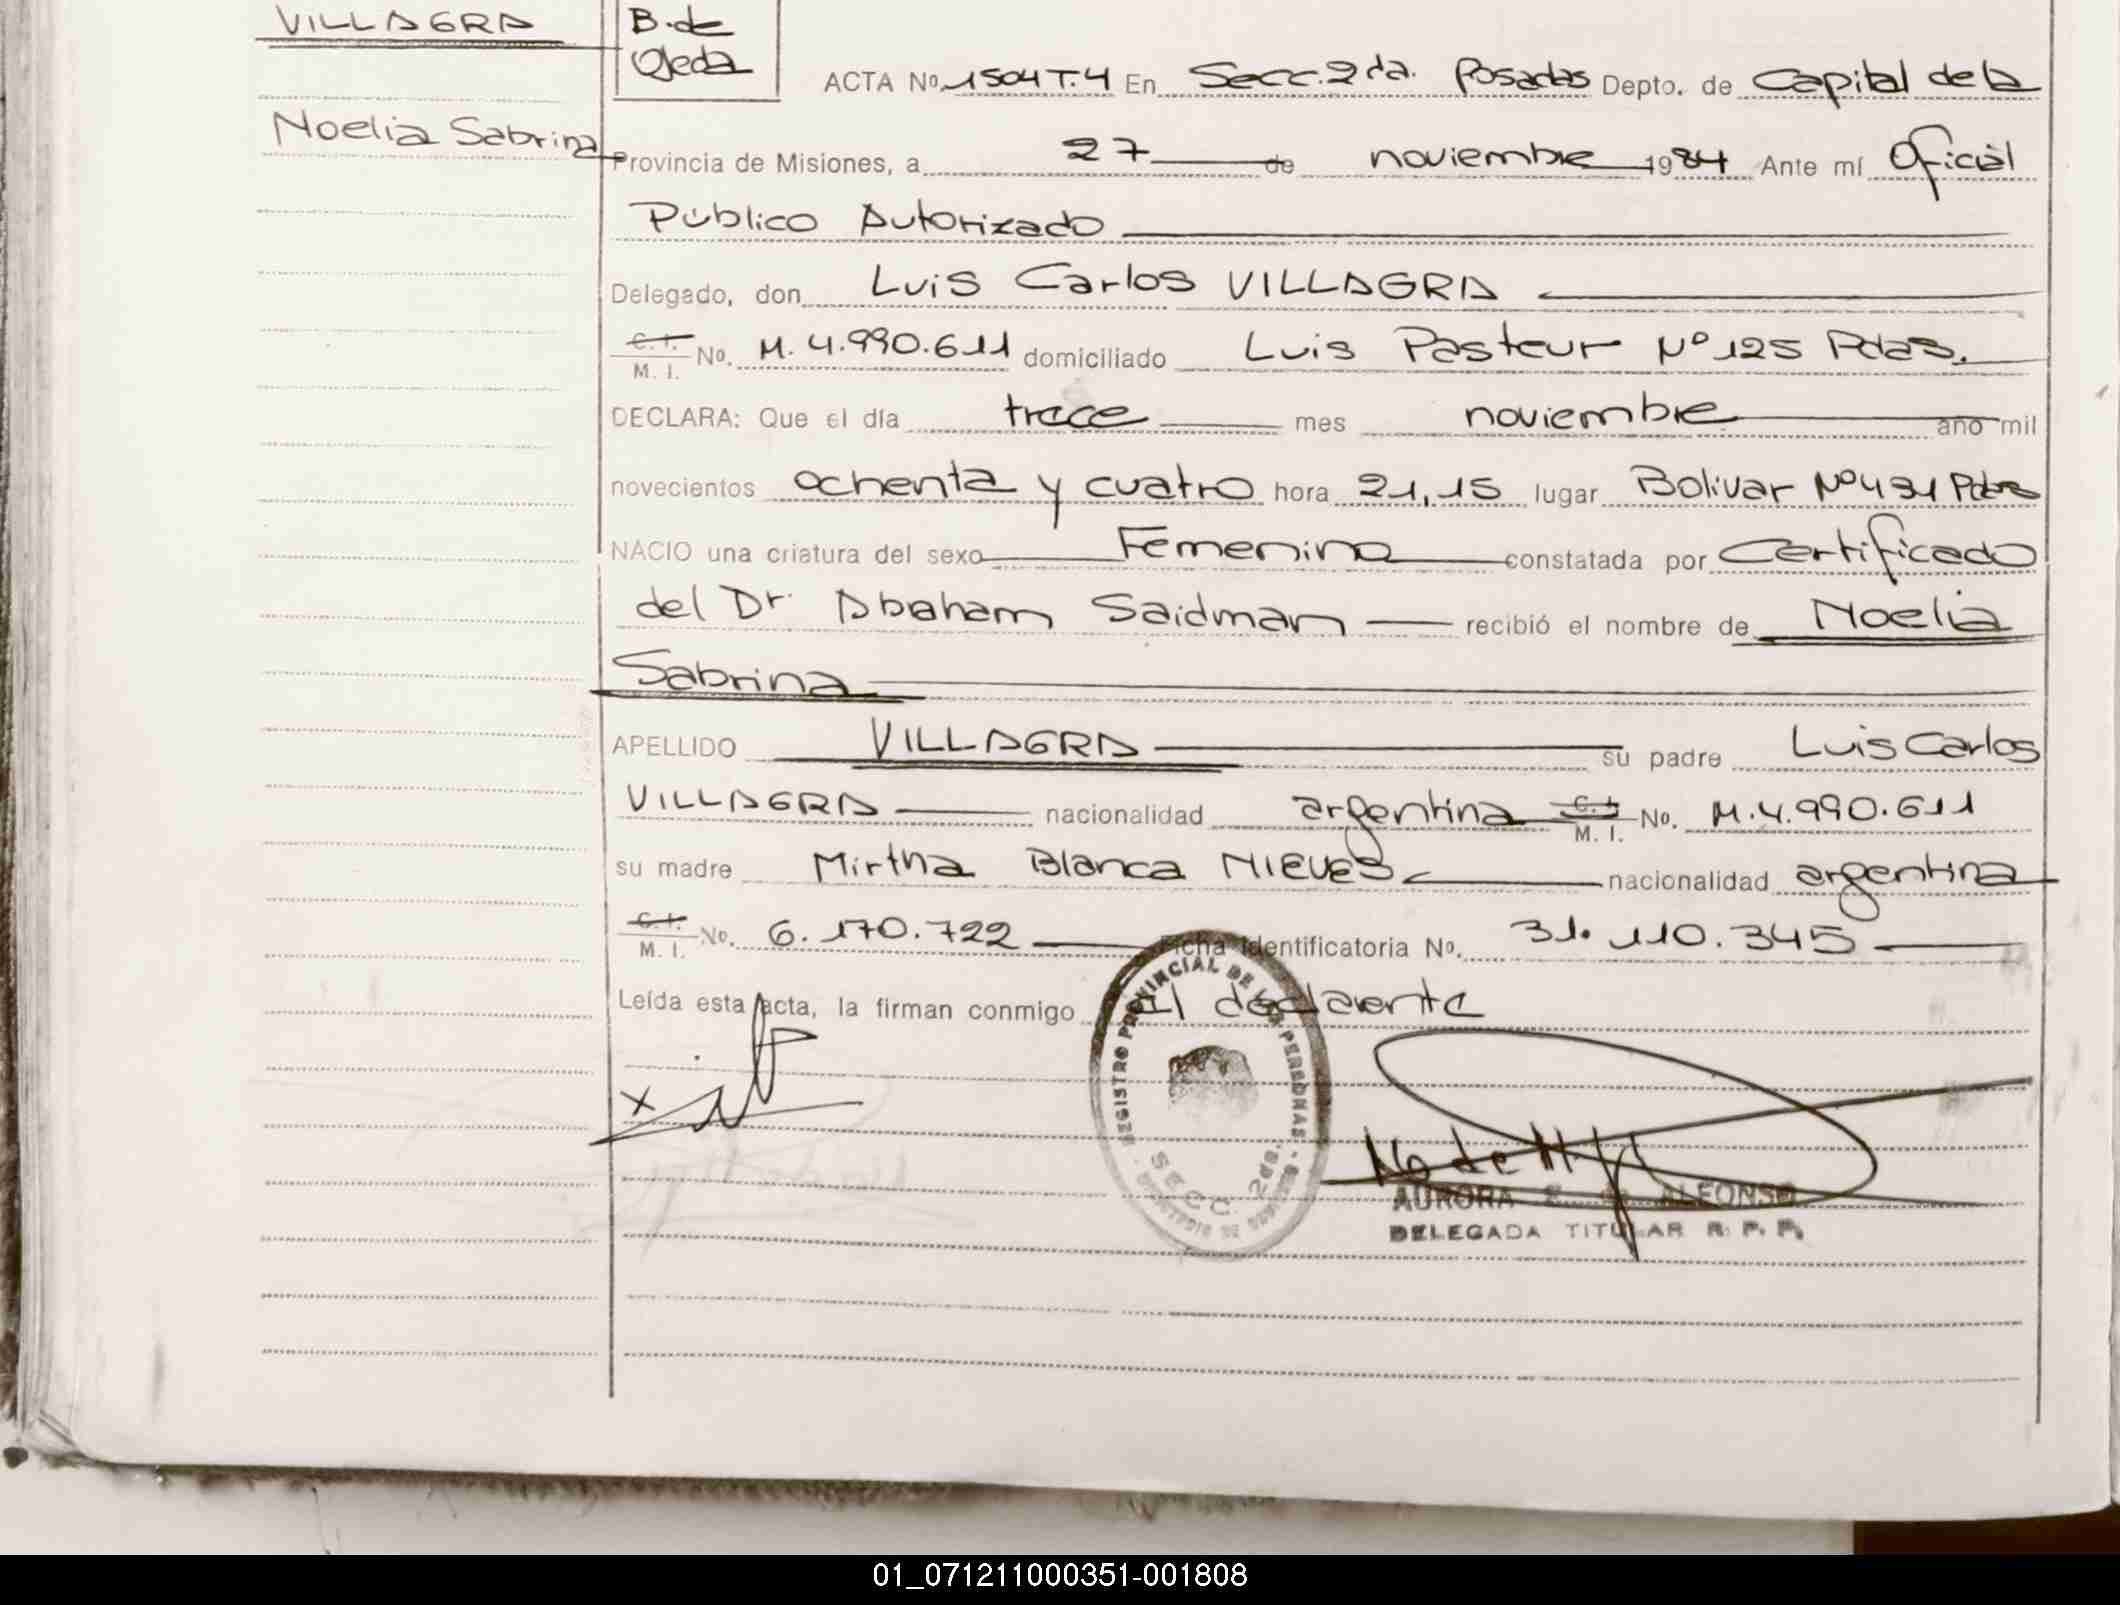 VILLAGRA
B. de
Ojeda
Noelia Sabrina
ACTA Nº 1504 T.4 En Secc. 2da. Posadas Depto. de Capital de la
Provincia de Misiones, a 27 de noviembre 1984 Ante mí Oficial
Público Autorizado
Delegado, don Luis Carlos VILLAGRA
C. I.
M. I. No. M. 4.990.611 domiciliado Luis Pasteur Nº 125 Pdas.
DECLARA: Que el día trece mes noviembre año mil
novecientos ochenta y cuatro hora 21,15 lugar Bolivar Nº 431 Pdas
NACIO una criatura del sexo Femenino constatada por Certificado
del Dr. Abaham Saidman recibió el nombre de Noelia
Sabrina
APELLIDO VILLAGRA su padre Luis Carlos
VILLAGRA nacionalidad argentina C. I.
M. I. No. M. 4.990.611
su madre Mirtha Blanca NIEVES nacionalidad argentina
C. I.
M. I. No. 6.170.722 Ficha Identificatoria Nº. 31.110.345
Leída esta acta, la firman conmigo el declarante
REGISTRO PROVINCIAL DE LAS PERSONAS
SECC. 2da.
X
AURORA ALFONSO
DELEGADA TITULAR R. P. P.
01_071211000351-001808